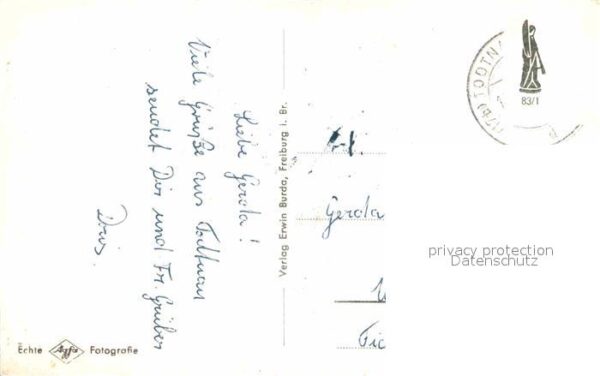 Liebe Gerda!
Viele Grüße aus Todtnau
sendet Dir und Fr. Gruber
Doris.
Verlag Erwin Burda, Freiburg i. Br.
Gerda
(17b) TODTN
83/1
privacy protection
Datenschutz
Echte Agfa Fotografie